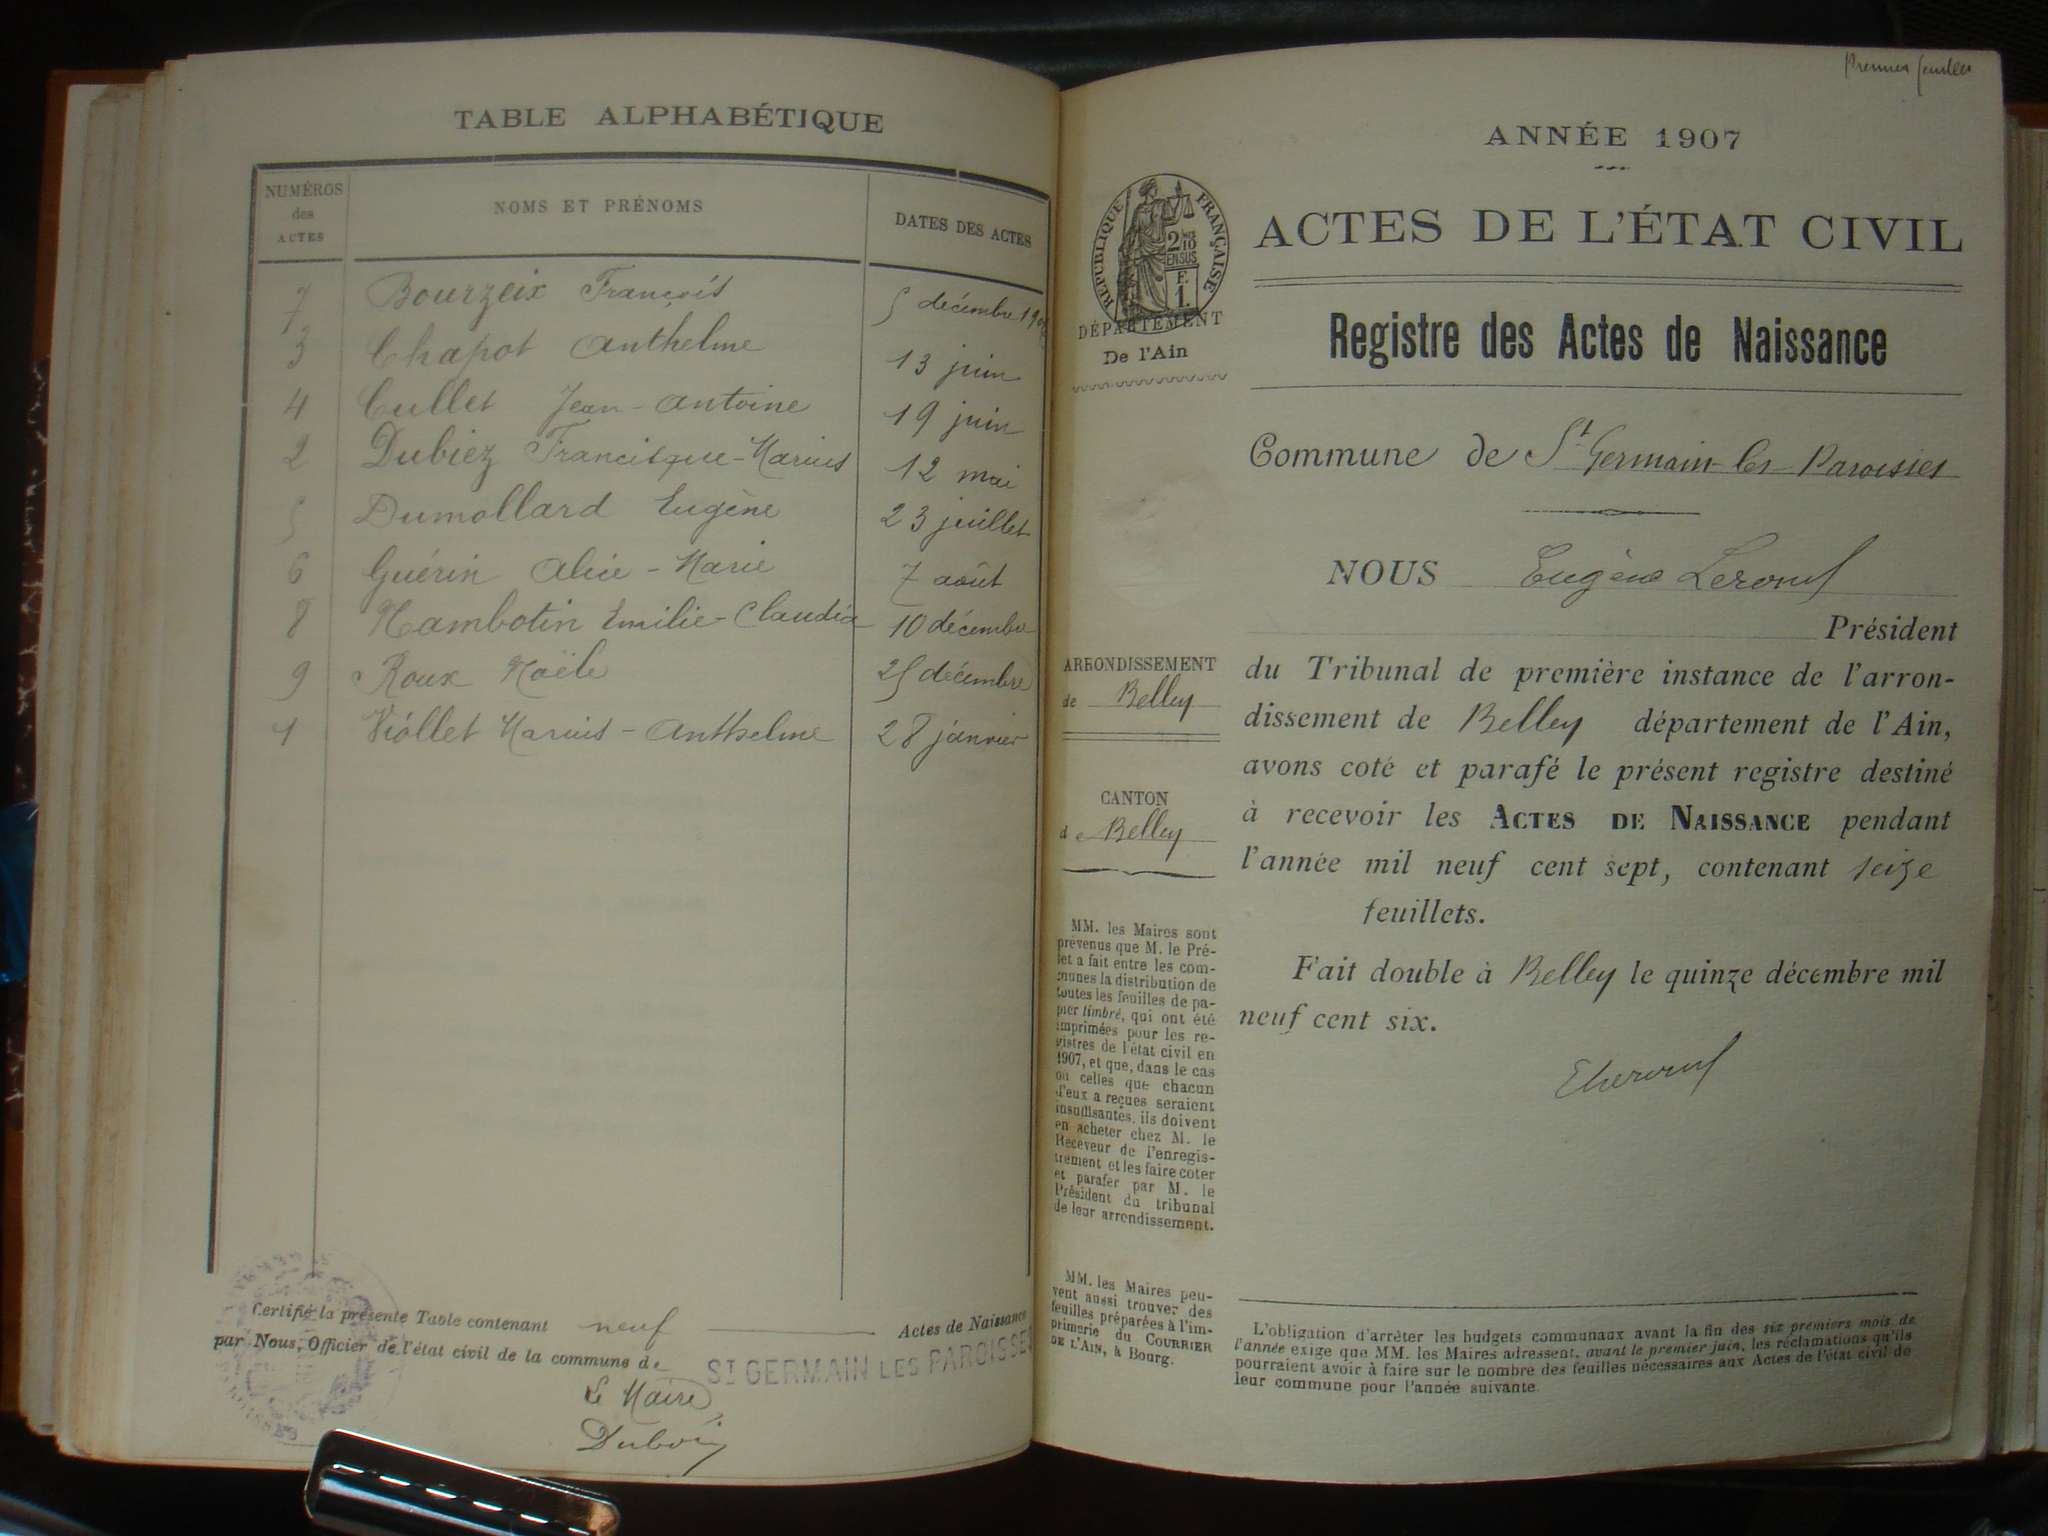 TABLE ALPHABÉTIQUE
NUMÉROS des ACTES
NOMS ET PRÉNOMS
DATES DES ACTES
7 Bourzeix François 5 décembre
3 Chapot Anthelme 13 juin
4 Cullet Jean-Antoine 19 juin
2 Dubiez Francisque-Marius 12 mai
5 Dumollard Eugène 23 juillet
6 Guérin Alice-Marie 7 août
8 Mambotin Emilie-Claudia 10 décembre
9 Roux Noële 25 décembre
1 Viollet Marius-Anthelme 28 janvier
Certifié la présente Table contenant neuf Actes de Naissance
par Nous, Officier de l'état civil de la commune de
ST GERMAIN LES PAROISSES
Le Maire
Dubois
Premier feuillet
ANNÉE 1907
RÉPUBLIQUE FRANÇAISE
2/10 EN SUS
F. 1.
ACTES DE L'ÉTAT CIVIL
DÉPARTEMENT
De l'Ain
Registre des Actes de Naissance
Commune de St Germain-les-Paroisses
NOUS Eugène
Président
ARRONDISSEMENT
de Belley
du Tribunal de première instance de l'arron-
dissement de Belley département de l'Ain,
avons coté et parafé le présent registre destiné
CANTON
de Belley
à recevoir les ACTES DE NAISSANCE pendant
l'année mil neuf cent sept, contenant seize
feuillets.
Fait double à Belley le quinze décembre mil
neuf cent six.
MM. les Maires sont
prévenus que M. le Pré-
fet a fait entre les com-
munes la distribution de
toutes les feuilles de pa-
pier timbré, qui ont été
imprimées pour les re-
gistres de l'état civil en
1907, et que, dans le cas
où celles que chacun
d'eux a reçues seraient
insuffisantes, ils doivent
en acheter chez M. le
Receveur de l'enregis-
trement et les faire coter
et parafer par M. le
Président du tribunal
de leur arrondissement.
MM. les Maires peu-
vent aussi trouver des
feuilles préparées à l'im-
primerie du COURRIER
DE L'AIN, à Bourg.
L'obligation d'arrêter les budgets communaux avant la fin des six premiers mois de
l'année exige que MM. les Maires adressent, avant le premier juin, les réclamations qu'ils
pourraient avoir à faire sur le nombre des feuilles nécessaires aux Actes de l'état civil de
leur commune pour l'année suivante.